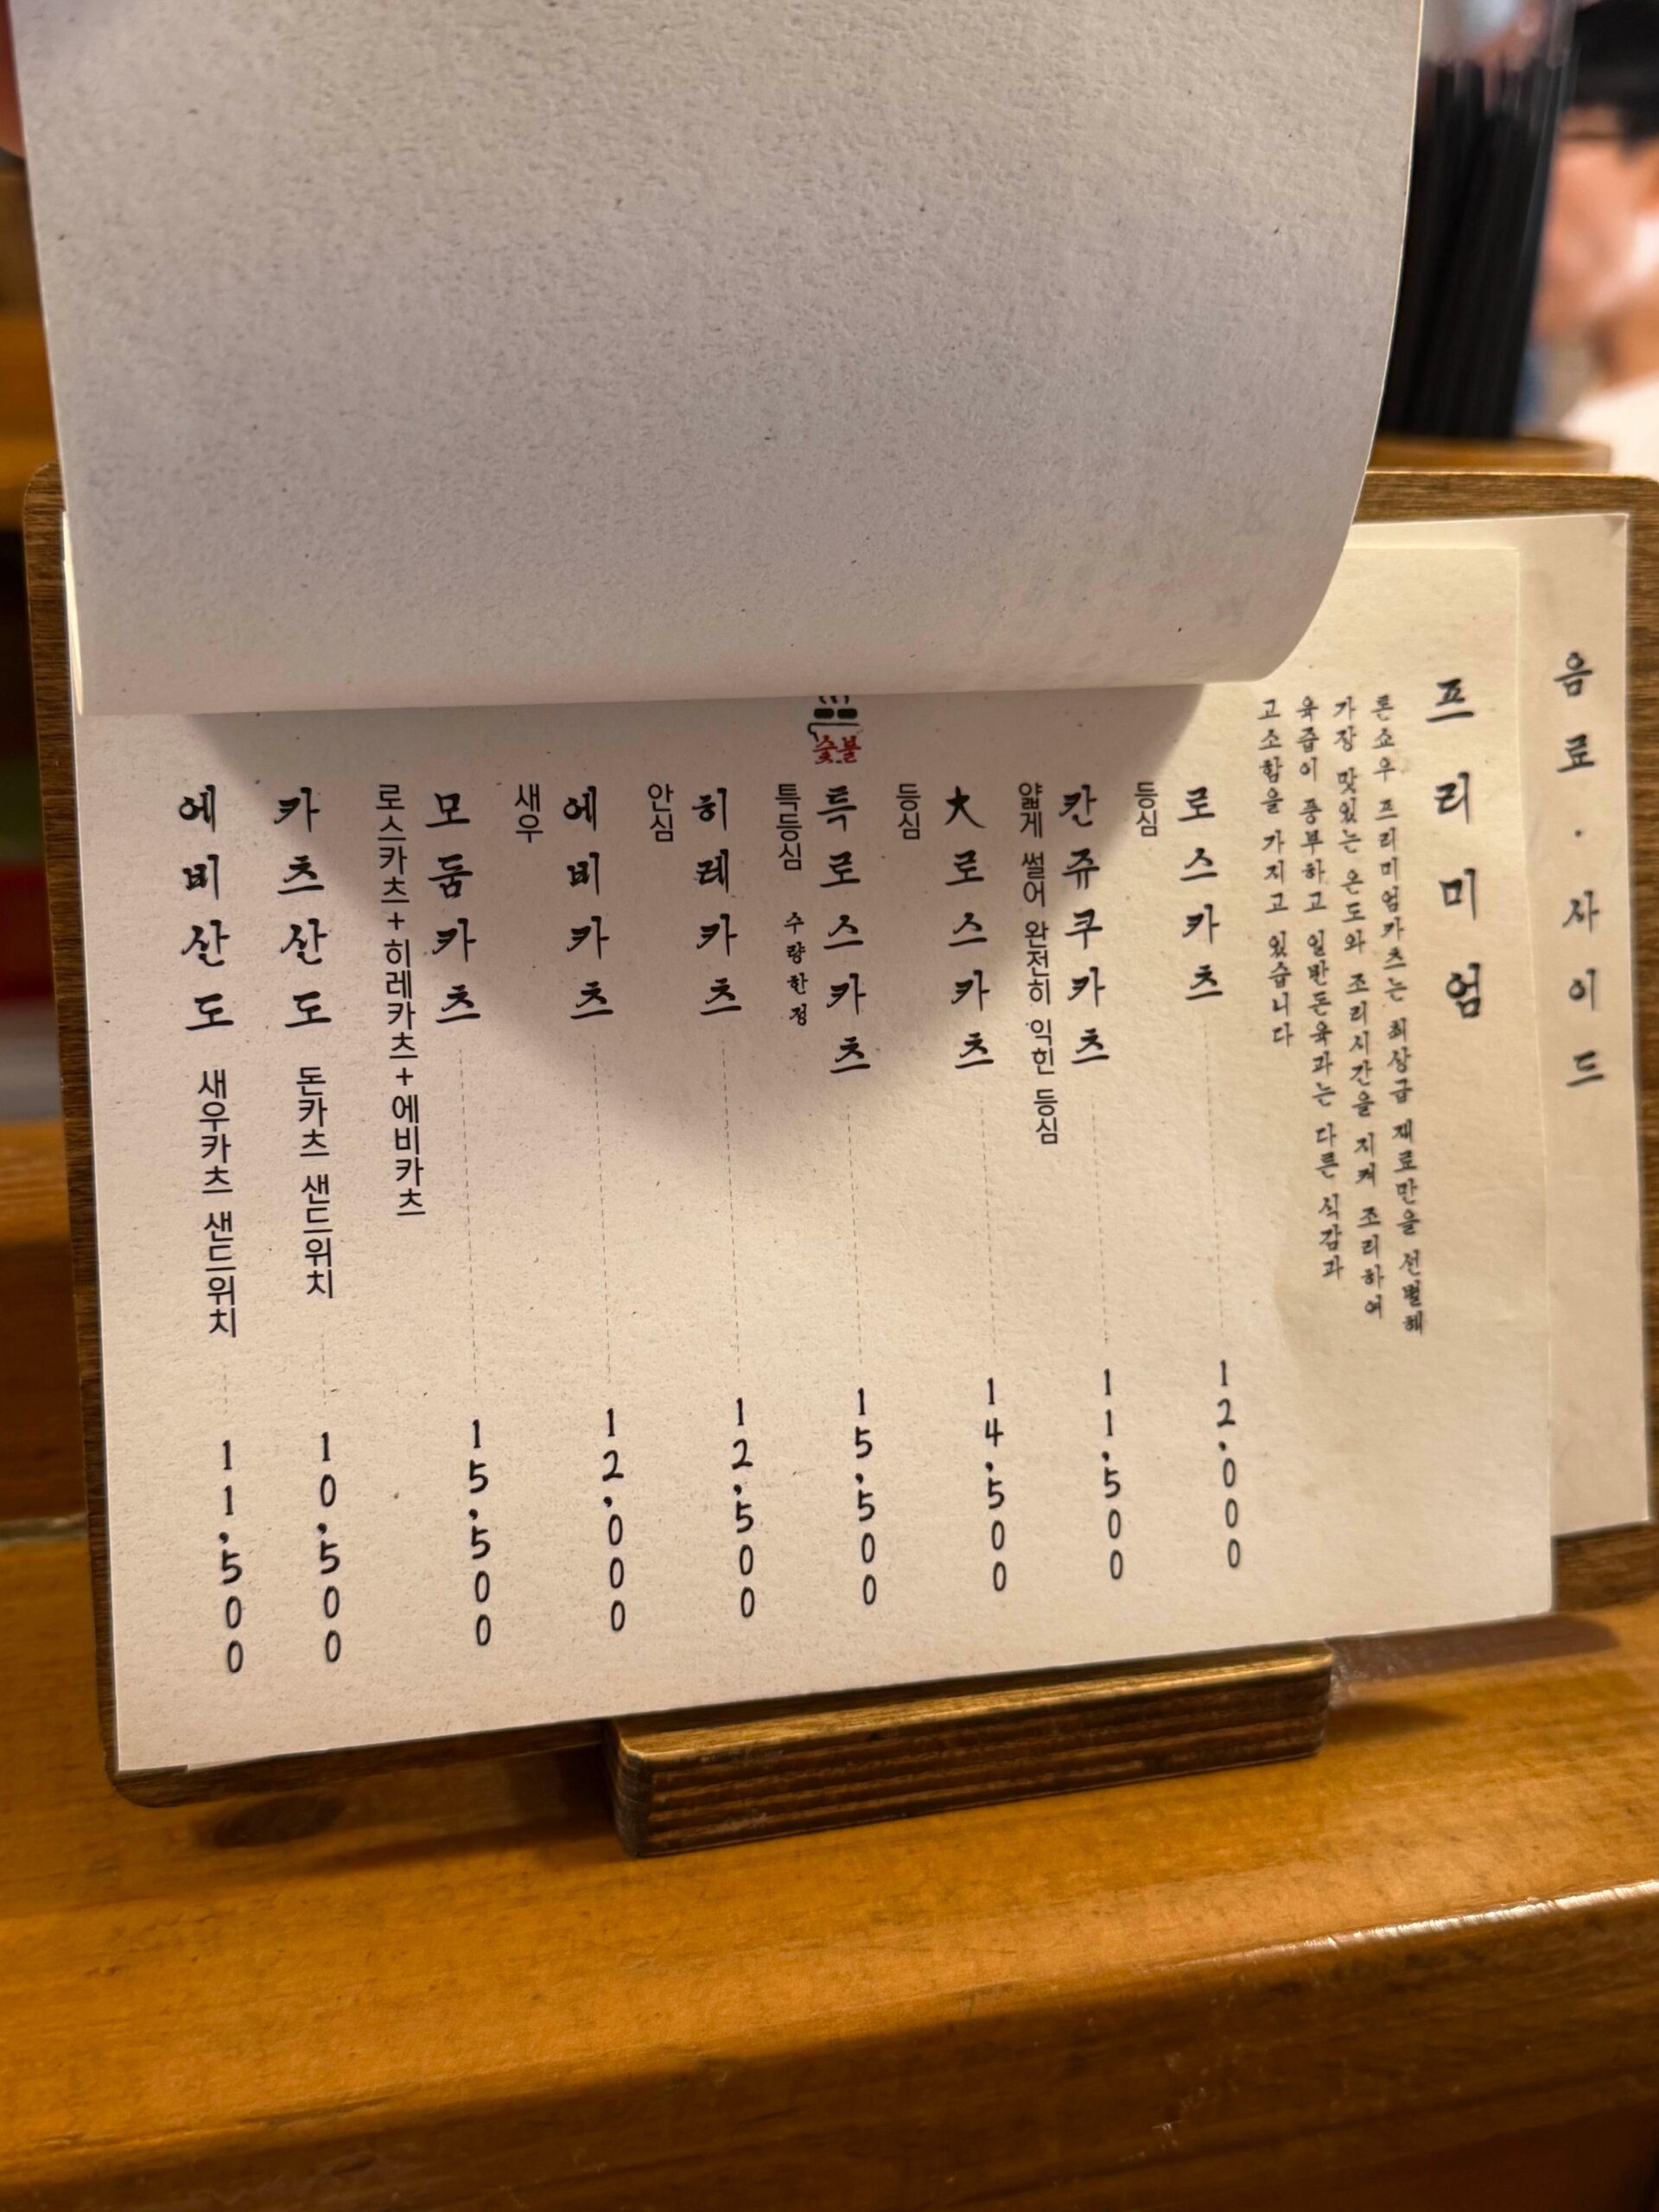 음료·사이드
프리미엄
톤쇼우 프리미엄카츠는 최상급 재료만을 선별해
가장 맛있는 온도와 조리시간을 지켜 조리하여
육즙이 풍부하고 일반돈육과는 다른 식감과
고소함을 가지고 있습니다
로스카츠 12,000
등심
칸쥬쿠카츠 11,500
얇게 썰어 완전히 익힌 등심
大로스카츠 14,500
등심
숯불
특로스카츠 15,500
특등심 수량한정
히레카츠 12,500
안심
에비카츠 12,000
새우
모둠카츠 15,500
로스카츠+히레카츠+에비카츠
카츠산도 돈카츠 샌드위치 10,500
에비산도 새우카츠 샌드위치 11,500